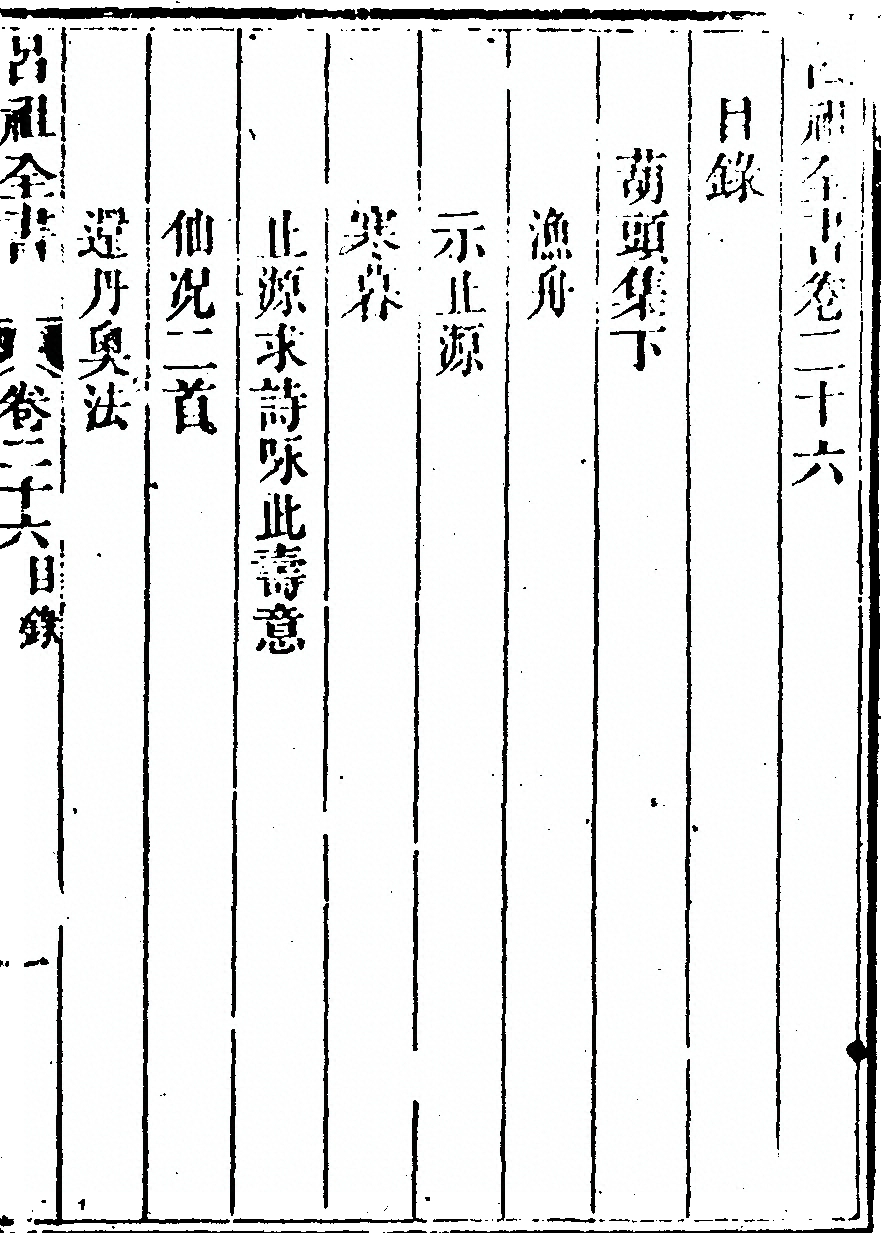 呂祖全書卷二十六
目錄
葫頭集下
漁舟
示止源
寒暮
止源求詩咏此壽意
仙況二首
還丹奥法
呂祖全書 卷二十六 目錄 一